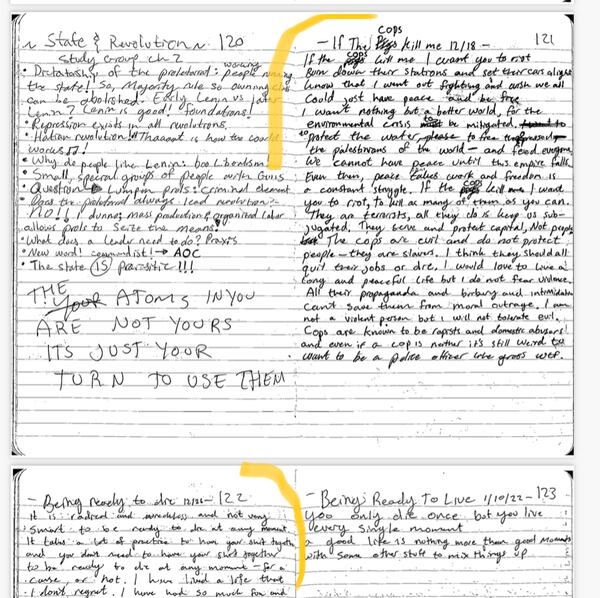 ~ State & Revolution ~ 120
Study Group ch 2
• Dictatorship of the proletariat: people running
the state! So, Majority rule so owning class
can be abolished. Early Lenin vs later
Lenin? Lenin is good! foundations!
• Repression exists in all revolutions.
• Haitian revolution!! Thaaaat is how the
works!!!
• Why do people like Lenin: boo Liberalism!
• Small, special groups of people with Guns
• Question → Lumpen prols: criminal element
• Does the proletariat always lead revolution?-
NO!! I dunno; mass production & organized labor
allows prols to seize the means!
• What does a leader need to do? Praxis
• New word! → AOC
• The state (IS) parasitic!!!
THE
ATOMS IN YOU
ARE NOT YOURS
IT'S JUST YOUR
TURN TO USE THEM
- If The cops Kill me 12/18 - 121
If the cops kill me I want you to riot
Burn down their stations and set their cars alight
know that I went out fighting and wish we all
could just have peace and be free
I want nothing but a better world, for the
environmental crisis to be mitigated,
to protect the water,
the palestinians of the world - and feed everyone
We cannot have peace until this empire falls
Even then, peace takes work and freedom is
a constant struggle. If the cops kill me I want
you to riot, to kill as many of them as you can.
They are terrorists, all they do is keep us sub-
jugated, They serve and protect capital, Not people
The cops are evil and do not protect
people - they are slavers. I think they should all
quit their jobs or die. I would love to live a
long and peaceful life but I do not fear violence.
All their propaganda and bribary and intimidation
can't save them from moral outrage. I am
not a violent person but I will not tolerate evil.
Cops are known to be rapists and domestic abusers
and even if a cop is neither it's still weird to
want to be a police officer like gross wtf.
- Being ready to die 12/26 - 122
It is radical and and not very
smart to be ready to die at any moment.
It takes a lot of practice to have your shit together
and you don't need to have your shit together
to be ready to die at any moment - for a
cause, or not. I have lived a life that
I don't regret. I have had so much fun and
- Being Ready To Live 1/10/22 - 123
you only die once, but you live
every single moment
a good life is nothing more than good moments
with some other stuff to mix things up